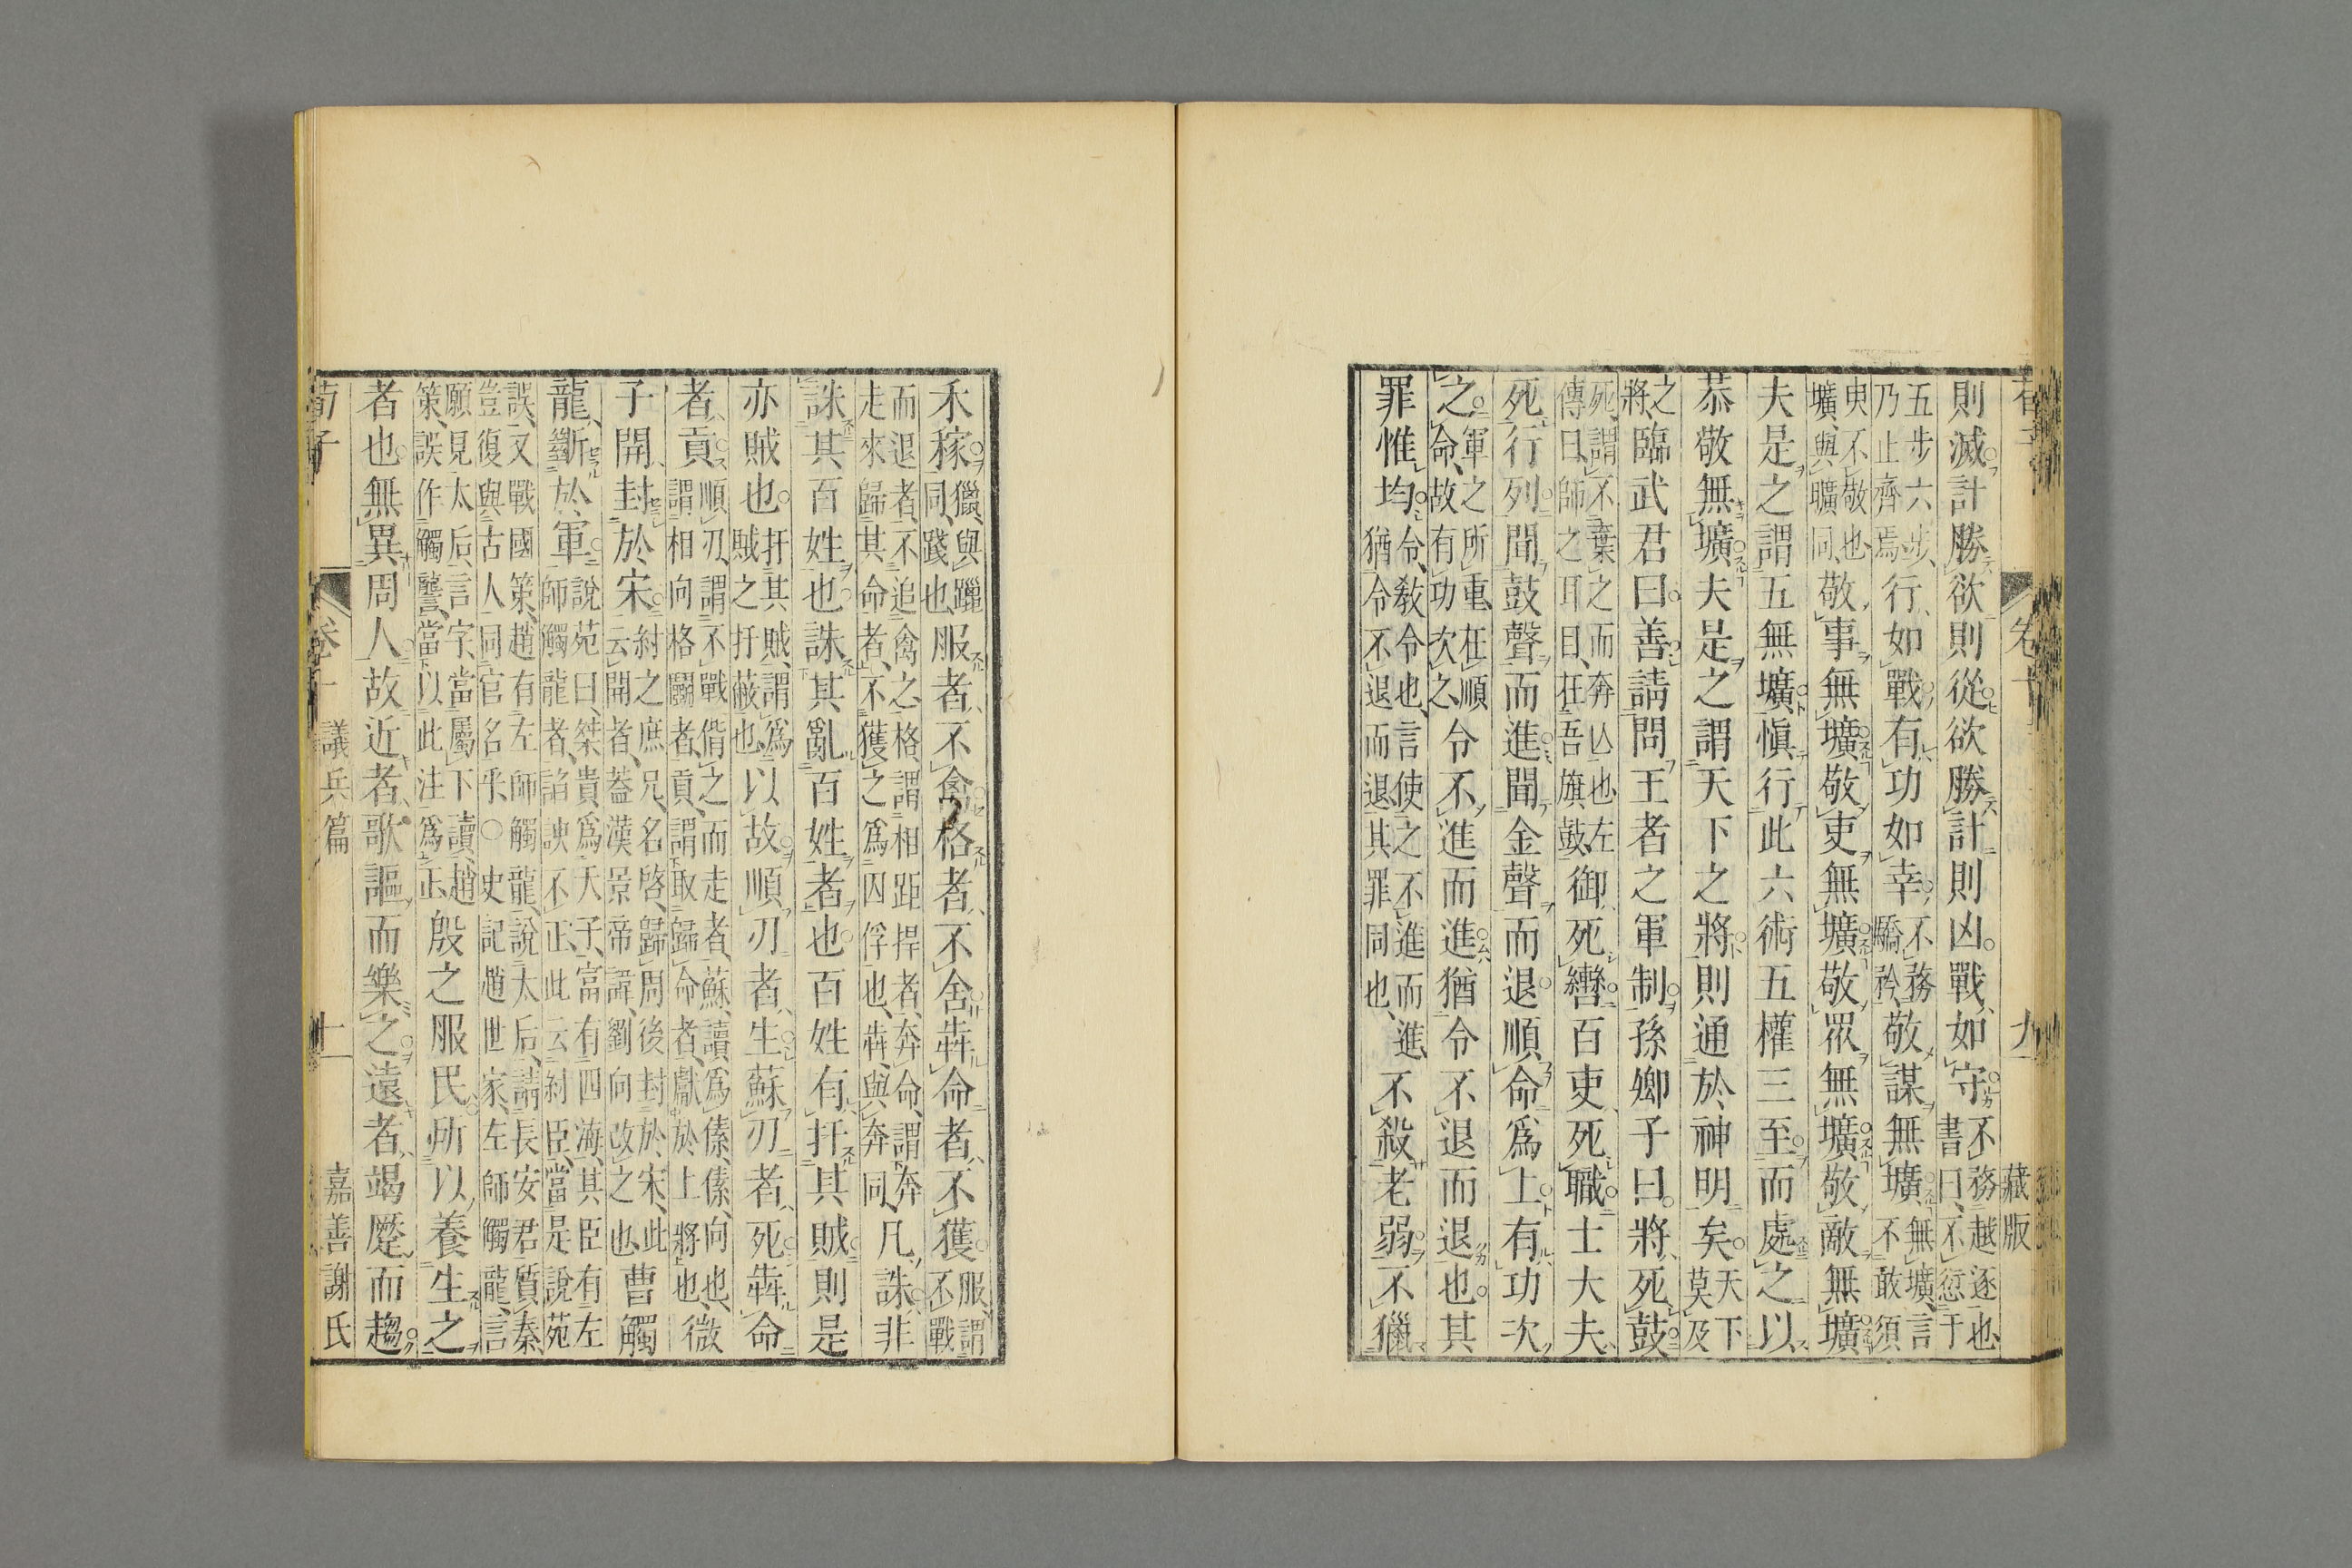 卷十 九 藏版
則滅計勝欲則從欲勝計則凶戰如守不務越逐也書曰不愆于
五步六步乃止齊焉行如戰有功如幸不務驕矜敬謀無壙無壙言不敢須
臾不敬也壙與曠同敬事無壙敬吏無壙敬眾無壙敬敵無壙
夫是之謂五無壙愼行此六術五權三至而處之以
恭敬無壙夫是之謂天下之將則通於神明矣天下莫及
之將臨武君曰善請問王者之軍制孫卿子曰將死鼓
死謂不棄之而奔亾也左傳曰師之耳目在吾旗鼓御死轡百吏死職士大夫
死行列聞鼓聲而進聞金聲而退順命爲上有功次
之軍之所重在順命故有功次之令不進而進猶令不退而退也其
罪惟均令敎令也言使之不進而進猶令不退而退其罪同也不殺老弱不獵
禾稼獵與躐同踐也服者不禽格者不舍犇命者不獲服謂不戰
而退者不追禽之格謂相距捍者奔命謂奔走來歸其命者不獲之爲囚俘也犇與奔同凡誅非
誅其百姓也誅其亂百姓者也百姓有扞其賊則是
亦賊也扞其賊謂爲賊之扞蔽也以故順刃者生蘇刃者死犇命
者貢順刃謂不戰偝之而走者蘇讀爲傃傃向也謂相向格鬭者貢謂取歸命者獻於上將也微
子開封於宋紂之庶兄名啓歸周後封於宋此云開者蓋漢景帝諱劉向改之也曹觸
龍斷於軍說苑曰桀貴爲天子富有四海其臣有左師觸龍者諂諛不正此云紂臣當是說苑
誤又戰國策趙有左師觸龍說太后請長安君質秦言豈復與古人同官名乎○史記趙世家左師觸龍言
願見太后言字當屬下讀趙策誤作觸讋當以此注爲正殷之服民所以養生之
者也無異周人故近者歌謳而樂之遠者竭蹷而趨
荀子 卷十 議兵篇 十 嘉善謝氏